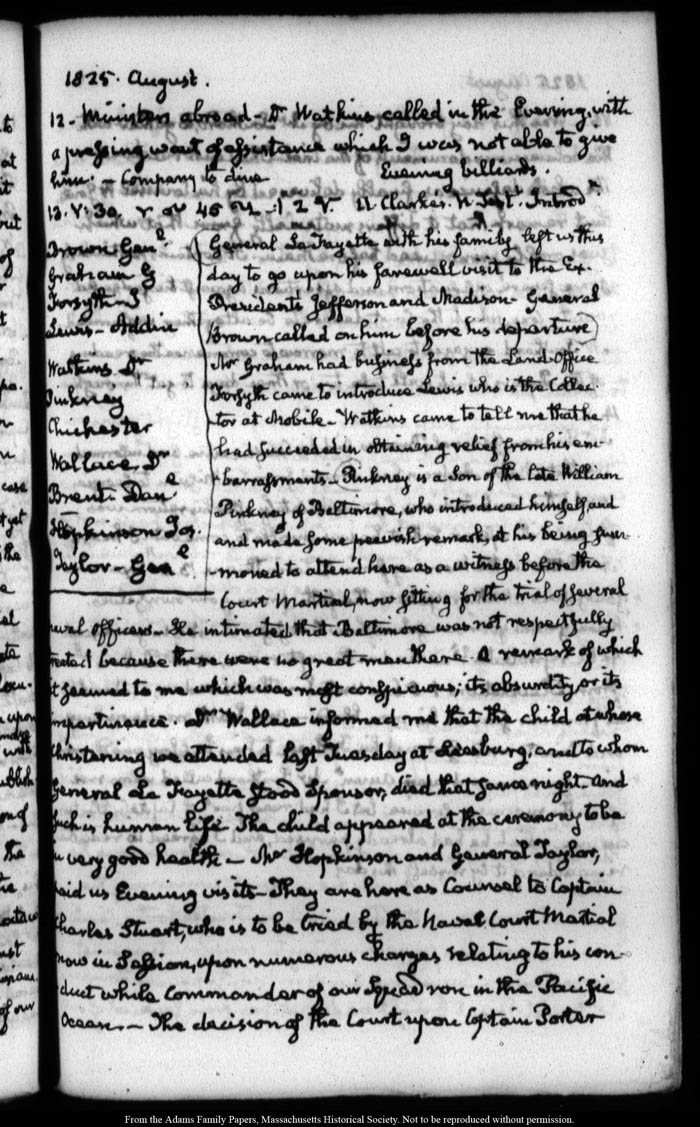 1825. August.
12. Ministers abroad - Dr Watkins called in the Evening, with
a pressing want of assistance which I was not able to give
him. - Company to dine Evening billiards.
13. V: 30. 45 1 2 V. 11 Clarke's. N. Testt. Introdn.
Brown Genl.
Graham G
Forsyth-J
Lewis-Addin
Watkins Dr
Pinkney
Chichester
Wallace. Dr
Brent. Danl
Hopkinson Jos.
Taylor-Genl
General La Fayette with his family left us this
day to go upon his farewell visit to the Ex-
Presidents Jefferson and Madison - General
Brown called on him before his departure)
Mr Graham had business from the Land-Office
Forsyth came to introduce Lewis who is the Collec-
tor at Mobile - Watkins came to tell me that he
had succeeded in obtaining relief from his em-
barrassments - Pinkney is a Son of the late William
Pinkney of Baltimore, who introduced himself, and
and made some peevish remark, at his being sum-
moned to attend here as a witness before the
Court Martial, now sitting for the trial of several
naval officers - He intimated that Baltimore was not respectfully
treated because there were no great men there. A remark of which
it seemed to me which was most conspicuous; its absurdity or its
impertinence. Dr Wallace informed me that the child at whose
christening we attended last Tuesday at Leesburg, and to whom
General La Fayette stood Sponsor, died that same night. And
such is human life. The child appeared at the ceremony to be
in very good health - Mr Hopkinson and General Taylor,
paid us Evening visits - They are here as Counsel to Captain
Charles Stuart, who is to be tried by the Naval Court Martial
now in Session, upon numerous charges relating to his con-
duct while commander of our Squadron in the Pacific
Ocean. - The decision of the Court upon Captain Porter
From the Adams Family Papers, Massachusetts Historical Society. Not to be reproduced without permission.